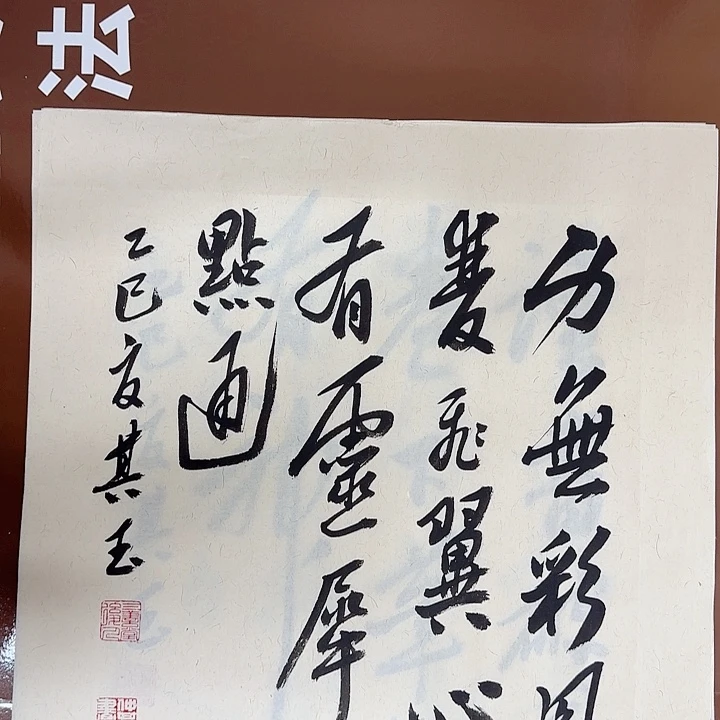 法
身無彩鳳
雙飛翼心
有靈犀
點通
乙巳夏其玉